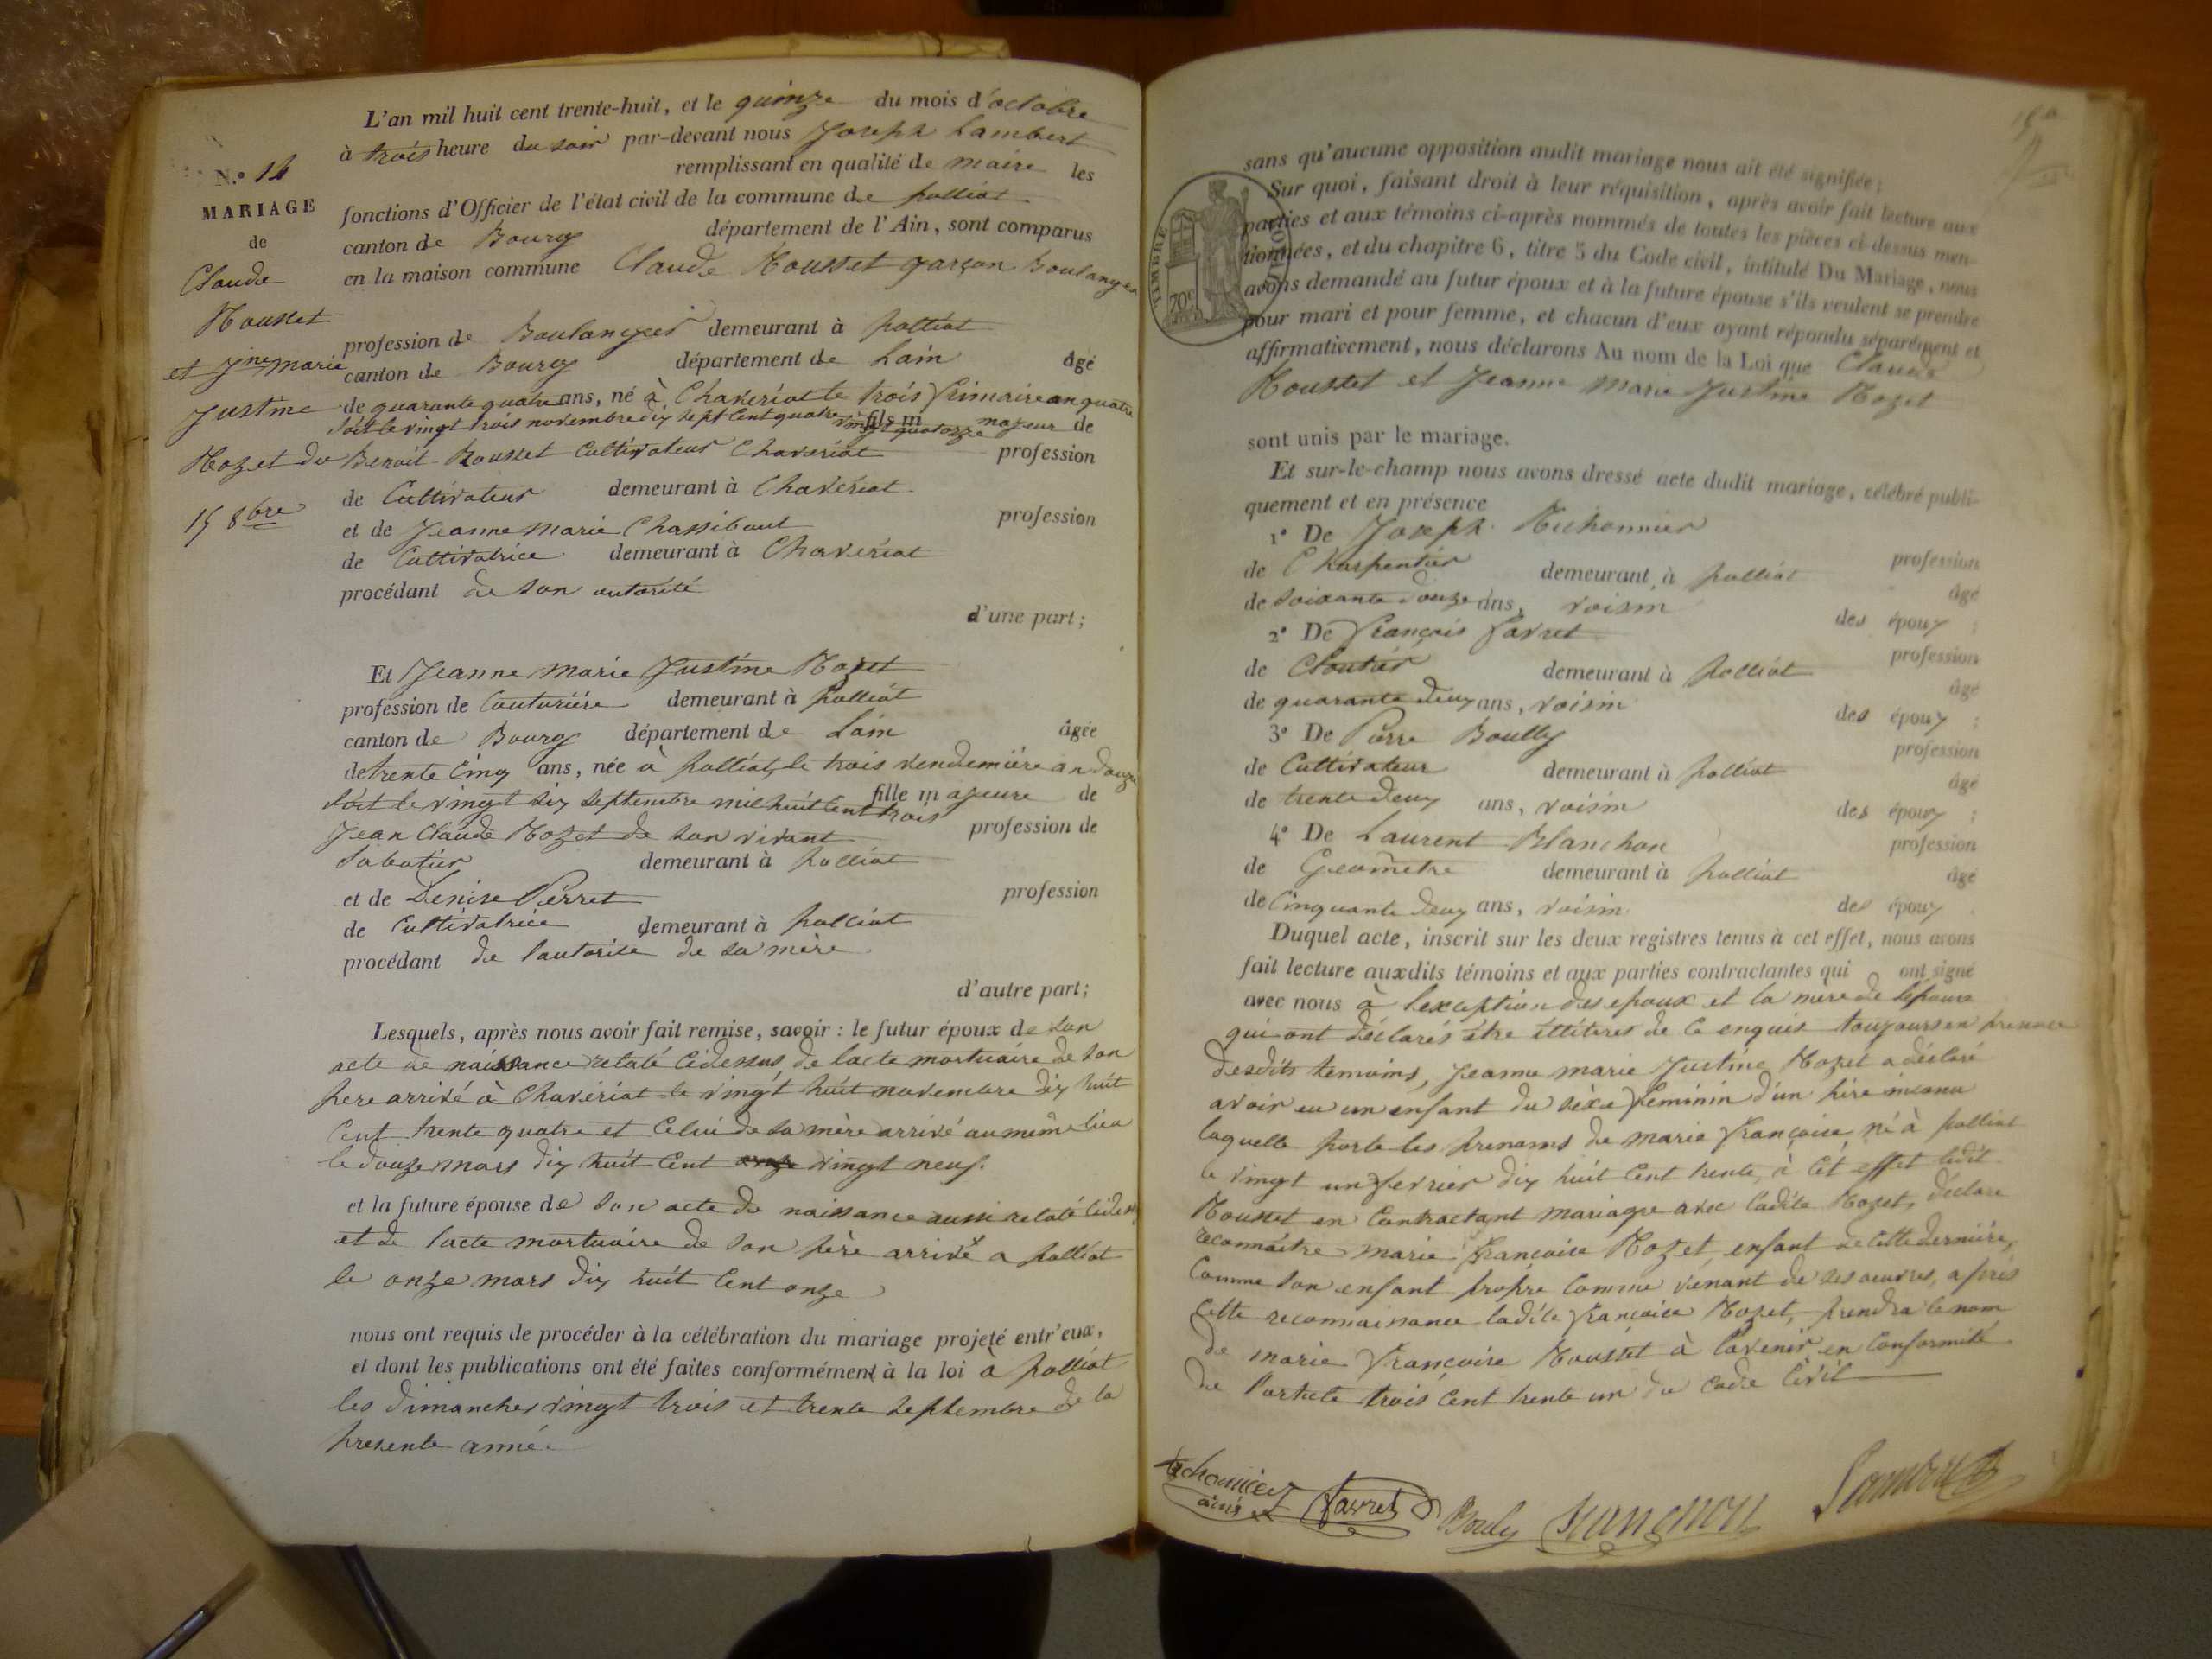 L'an mil huit cent trente-huit, et le quinze du mois d'octobre
à trois heure du soir par-devant nous Joseph Lambert
remplissant en qualité de maire les
fonctions d'Officier de l'état civil de la commune de polliat
canton de Bourg département de l'Ain, sont comparus
en la maison commune Claude Rousset garçon Boulanger
profession de Boulanger demeurant à polliat
canton de Bourg département de Lain âgé
de quarante quatre ans, né à Chaveriat le trois frimaire an quatre
soit le vingt trois novembre dix sept cent quatre vingt quatorze fils majeur de
Benoit Rousset Cultivateur Chaveriat profession
de Cultivateur demeurant à Chaveriat
et de Jeanne Marie Chassibout profession
de Cultivatrice demeurant à Chaveriat
procédant de son autorité
d'une part;
Et Jeanne Marie Justine Rozet
profession de Couturière demeurant à polliat
canton de Bourg département de Lain âgée
de trente Cinq ans, née à polliat, le trois vendemière an douze
soit le vingt six septembre mil huit Cent trois fille majeure de
Jean Claude Rozet de son vivant profession de
Sabotier demeurant à polliat
et de Denise Perret profession
de Cultivatrice demeurant à polliat
procédant de l'autorité de sa mère
d'autre part;
Lesquels, après nous avoir fait remise, savoir : le futur époux de son
acte de naissance relaté Cidessus, de lacte mortuaire de son
pere arrivé à Chavériat le vingt huit novembre dix huit
Cent trente quatre et Celui de sa mère arrivé au même lieu
le douze mars dix huit Cent vingt neuf.
et la future épouse de son acte de naissance aussi relaté Cidess
et de lacte mortuaire de son père arrivé a polliat
le onze mars dix huit Cent onze
nous ont requis de procéder à la célébration du mariage projeté entr'eux,
et dont les publications ont été faites conformément à la loi à polliat
les dimanches vingt trois et trente septembre de la
presente anné
N.º 14
MARIAGE
de
Claude
Rousset
et Jne marie
Justine
Rozet du
15 8bre
sans qu'aucune opposition audit mariage nous ait été signifiée;
Sur quoi, faisant droit à leur réquisition, après avoir fait lecture aux
parties et aux témoins ci-après nommés de toutes les pièces ci-dessus men-
tionnées, et du chapitre 6, titre 5 du Code civil, intitulé Du Mariage, nous
avons demandé au futur époux et à la future épouse s'ils veulent se prendre
pour mari et pour femme, et chacun d'eux ayant répondu séparément et
affirmativement, nous déclarons Au nom de la Loi que Claude
Rousset et Jeanne Marie Justine Rozet
sont unis par le mariage.
Et sur-le-champ nous avons dressé acte dudit mariage, célébré publi-
quement et en présence
1º De Joseph Michonnier profession
de Charpentier demeurant à polliat âgé
de soixante douze ans, voisin des époux ;
2º De François Favret profession
de Cloutier demeurant à polliat âgé
de quarante deux ans, voisin des époux ;
3º De Pierre Boully profession
de Cultivateur demeurant à polliat âgé
de trente deux ans, voisin des époux ;
4º De Laurent Blanchon profession
de Geometre demeurant à polliat âgé
de Cinquante deux ans, voisin des époux
Duquel acte, inscrit sur les deux registres tenus à cet effet, nous avons
fait lecture auxdits témoins et aux parties contractantes qui ont signé
avec nous à lexception des epoux et la mère de lepouse
qui ont déclarés être illiteres de Ce enquis toujours en presence
desdits temoins, Jeanne marie Justine Rozet a déclaré
avoir eu un enfant du sèxe feminin d'un père inconu
laquelle porte les prenoms de marie Françoise, né à polliat
le vingt un fevrier dix huit Cent trente, à Cet effet ledit
Rousset en Contractant mariage avec ladite Rozet, déclare
reconnaître marie françoise Rozet, enfant de Cette dernière,
Comme son enfant propre Comme vénant de ses oeuvres, après
Cette reconnaissance ladite Françoise Rozet, prendra le nom
de marie Françoise Rousset à lavenir en Conformité
de l'article trois Cent trente un du Code Civil
TIMBRE
70c
Favret
Bouly
Lambert